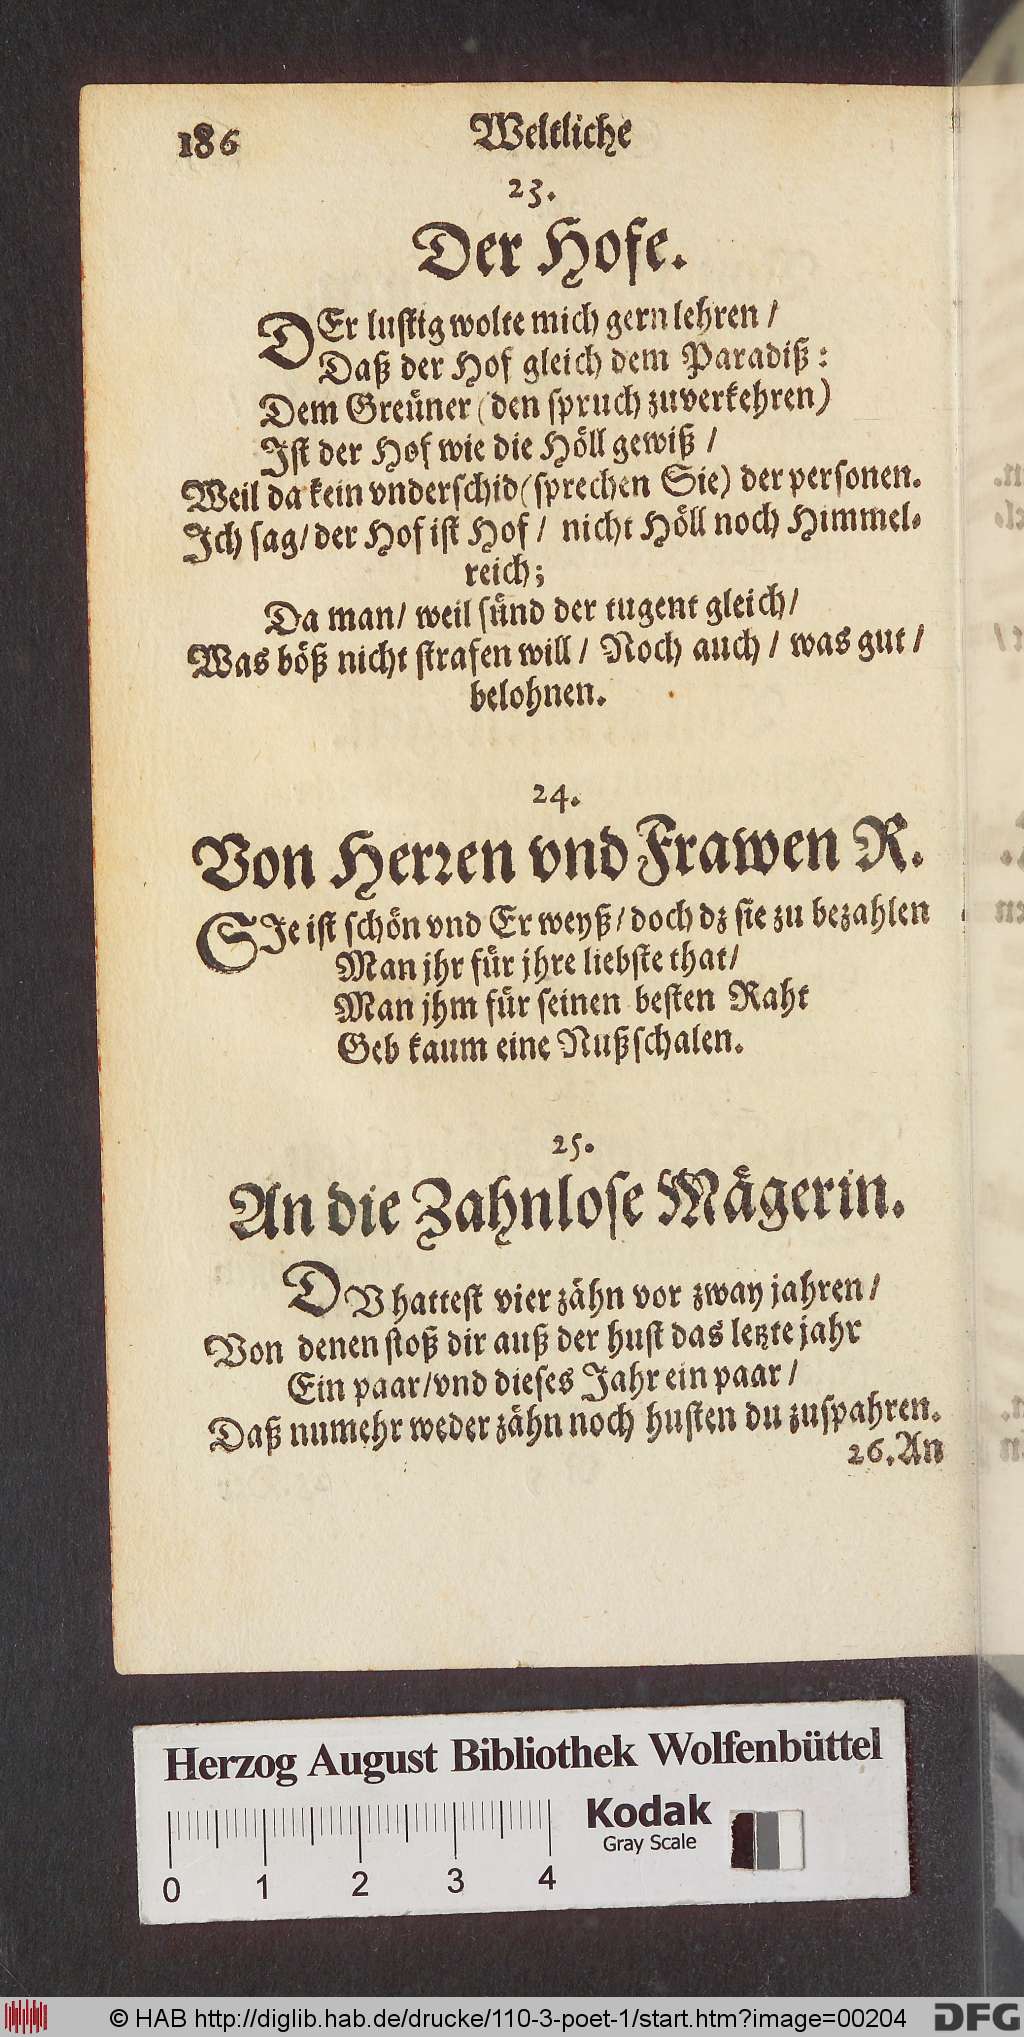 186 Weltliche
23.
Der Hofe.
DEr lustig wolte mich gern lehren /
Daß der Hof gleich dem Paradiß :
Dem Greüner (den spruch zuverkehren)
Ist der Hof wie die Höll gewiß /
Weil da kein vnderschid (sprechen Sie) der personen.
Ich sag / der Hof ist Hof / nicht Höll noch Himmel-
reich;
Da man / weil sünd der tugent gleich /
Was böß nicht strafen will / Noch auch / was gut /
belohnen.
24.
Von Herren vnd Frawen R.
SIe ist schön vnd Er weyß / doch dz sie zu bezahlen
Man jhr für jhre liebste that /
Man jhm für seinen besten Raht
Geb kaum eine Nußschalen.
25.
An die Zahnlose Mägerin.
DV hattest vier zähn vor zway jahren /
Von denen stoß dir auß der hust das letzte jahr
Ein paar / vnd dieses Jahr ein paar /
Daß numehr weder zähn noch husten du zuspahren.
26. An
Herzog August Bibliothek Wolfenbüttel
Kodak
Gray Scale
0 1 2 3 4
© HAB http://diglib.hab.de/drucke/110-3-poet-1/start.htm?image=00204
DFG